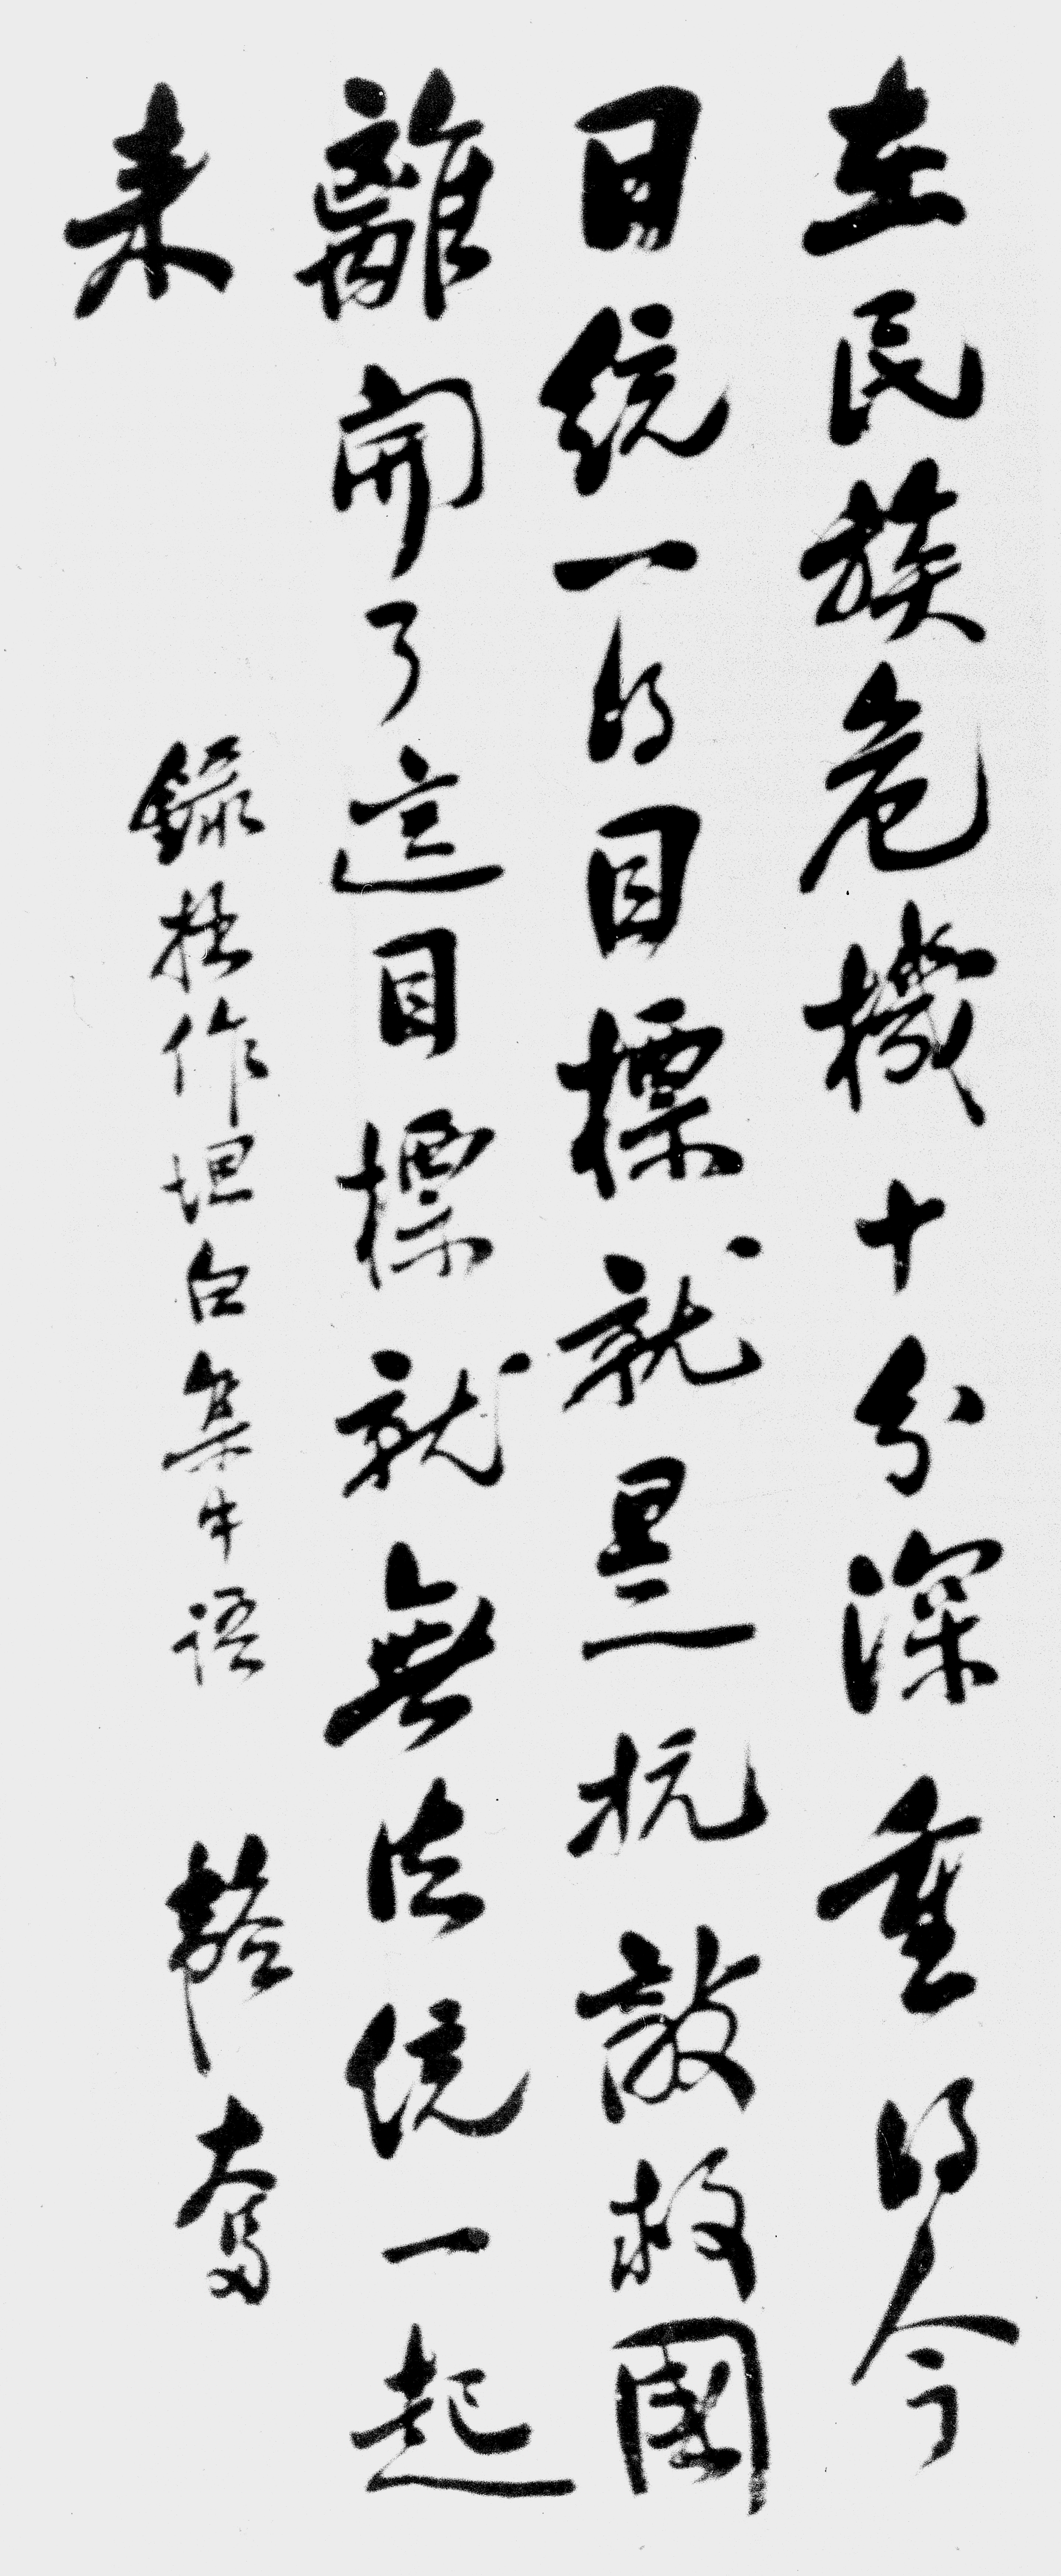 在民族危機十分深重的今
日統一的目標就是抗敵救國
離開了這目標就無法統一起
來
錄拙作坦白集中語
韜奮